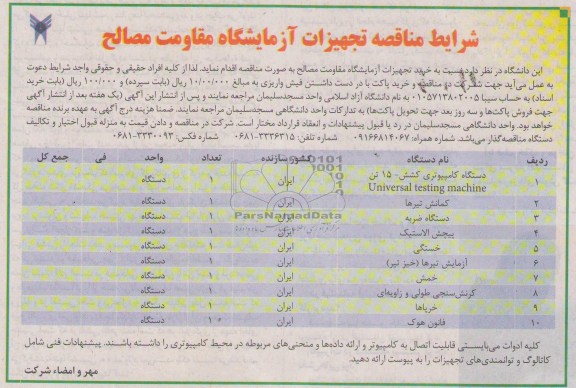 شرایط مناقصه تجهیزات آزمایشگاه مقاومت مصالح
این دانشگاه در نظر دارد نسبت به خرید تجهیزات آزمایشگاه مقاومت مصالح به صورت مناقصه اقدام نماید. لذا از کلیه افراد حقیقی و حقوقی واجد شرایط دعوت
به عمل می‌آید جهت شرکت در مناقصه و خرید پاکت با در دست داشتن فیش واریزی به مبالغ ۱۰/۰۰۰/۰۰۰ ریال (بابت سپرده) و ۱۰۰/۰۰۰ ریال (بابت خرید
اسناد) به حساب سیبا ۰۱۰۵۷۱۳۸۰۲۰۰۵ به نام دانشگاه آزاد اسلامی واحد مسجدسلیمان مراجعه نمایند و پس از انتشار این آگهی (یک هفته بعد از انتشار آگهی
جهت فروش پاکت‌ها و سه روز بعد جهت تحویل پاکت‌ها) به تدارکات واحد دانشگاهی مسجدسلیمان مراجعه نمایند. ضمنا هزینه درج آگهی به عهده برنده مناقصه
خواهد بود. واحد دانشگاهی مسجدسلیمان در رد یا قبول پیشنهادات و انعقاد قرارداد مختار است. شرکت در مناقصه و دادن قیمت به منزله قبول اختیار و تکالیف
دستگاه مناقصه‌گذار می‌باشد. شماره همراه: ۰۹۱۶۶۸۱۴۰۶۷ شماره تلفن: ۳۳۳۶۳۱۵-۰۶۸۱ شماره فکس: ۳۳۳۰۰۹۳-۰۶۸۱
ردیف نام دستگاه کشور سازنده تعداد واحد فی جمع کل
۱ دستگاه کامپیوتری کشش- ۱۵ تن ایران ۱ دستگاه
Universal testing machine
۲ کمانش تیرها ایران ۱ دستگاه
۳ دستگاه ضربه ایران ۱ دستگاه
۴ پیچش الاستیک ایران ۱ دستگاه
۵ خستگی ایران ۱ دستگاه
۶ آزمایش تیرها (خیز تیر) ایران ۱ دستگاه
۷ خمش ایران ۱ دستگاه
۸ کرنش‌سنجی طولی و زاویه‌ای ایران ۱ دستگاه
۹ خرپاها ایران ۱ دستگاه
۱۰ قانون هوک ایران ۱ دستگاه
ParsNamadData
کلیه ادوات می‌بایستی قابلیت اتصال به کامپیوتر و ارائه داده‌ها و منحنی‌های مربوطه در محیط کامپیوتری را داشته باشند. پیشنهادات فنی شامل
کاتالوگ و توانمندی‌های تجهیزات را به پیوست ارائه دهید.
مهر و امضاء شرکت